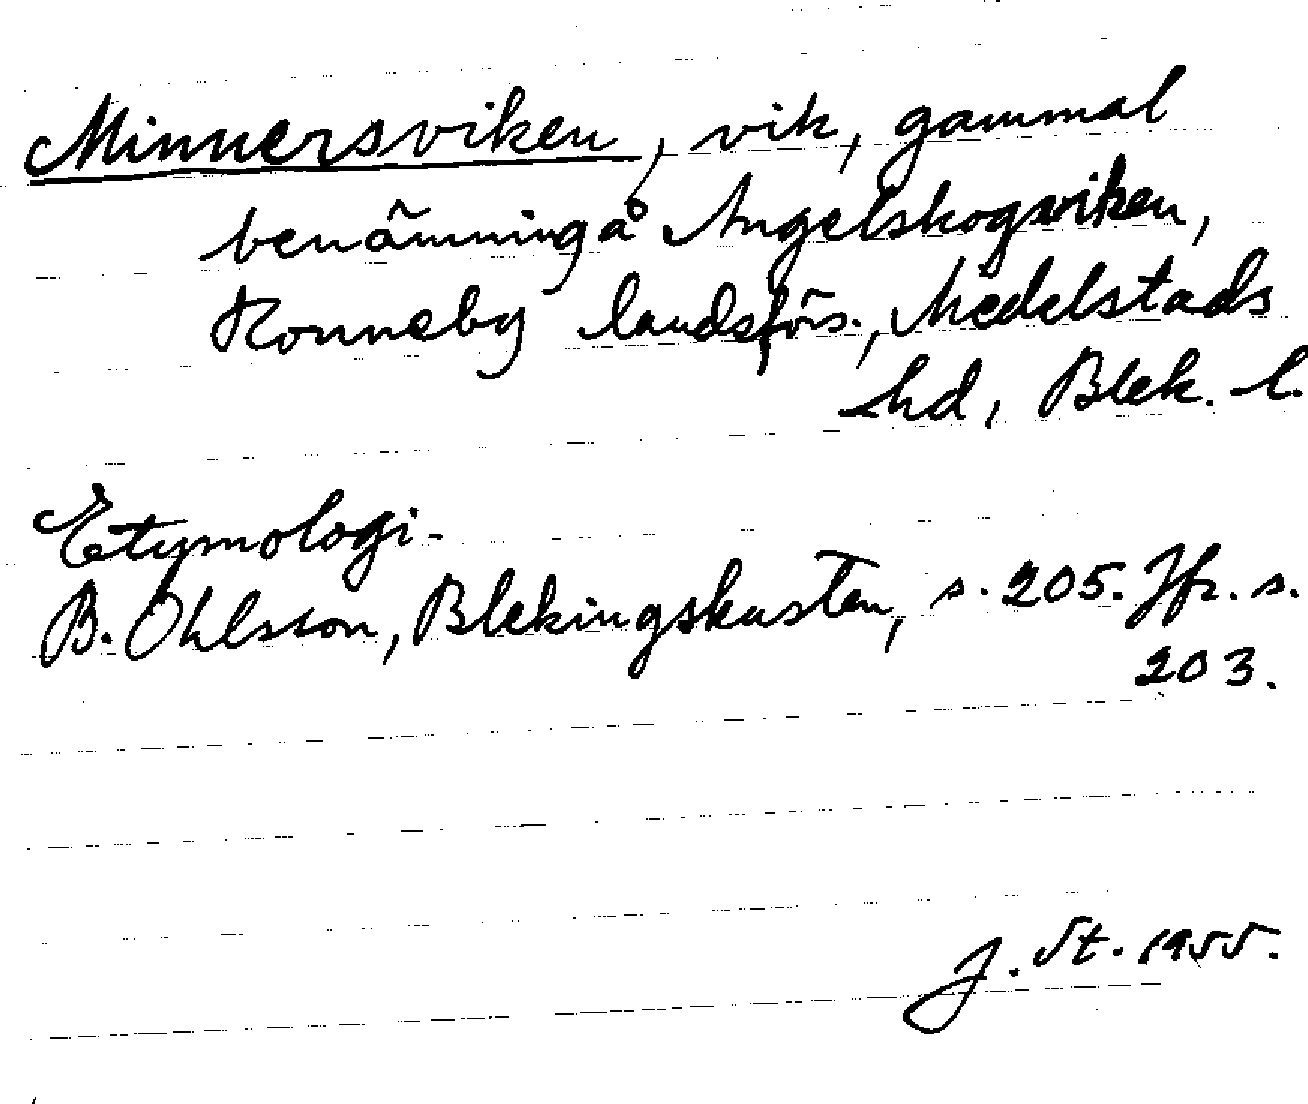 Minnersviken, vik, gammal
benämning å Angelskogsviken,
Ronneby landsförs., Medelstads
hd, Blek. l.
Etymologi.
B. Ohlsson, Blekingskusten, s. 205. Jfr. s.
203.
J. St. 1955.